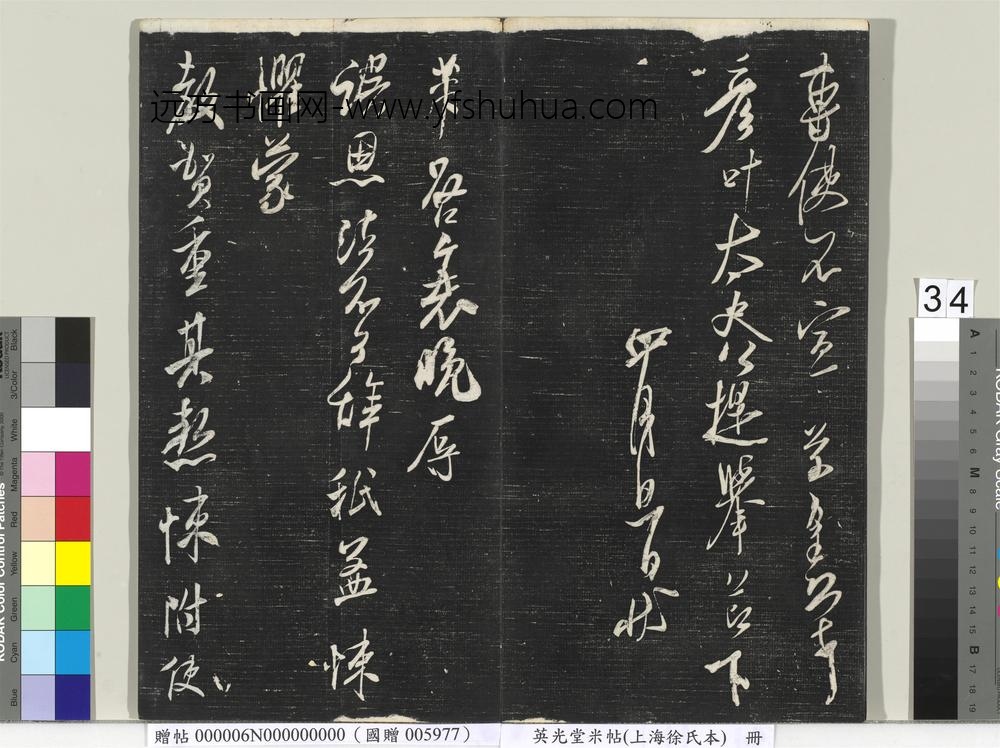 專使不宣
彥叶 公提舉 下
四月 日 狀
芾啓衰晚辱
誤恩請不 辭祗益悚
懼蒙
教賀重其 悚附使
远方书画网-www.yfshuhua.com
34
贈帖 000006N000000000（國贈 005977）
英光堂米帖(上海徐氏本) 冊
KODAK Color Control Patches
Blue Cyan Green Yellow Red Magenta White 3/Color Black
KODAK Gray Scale
A 1 2 3 4 5 6 M 8 9 10 11 12 13 14 15 B 17 18 19